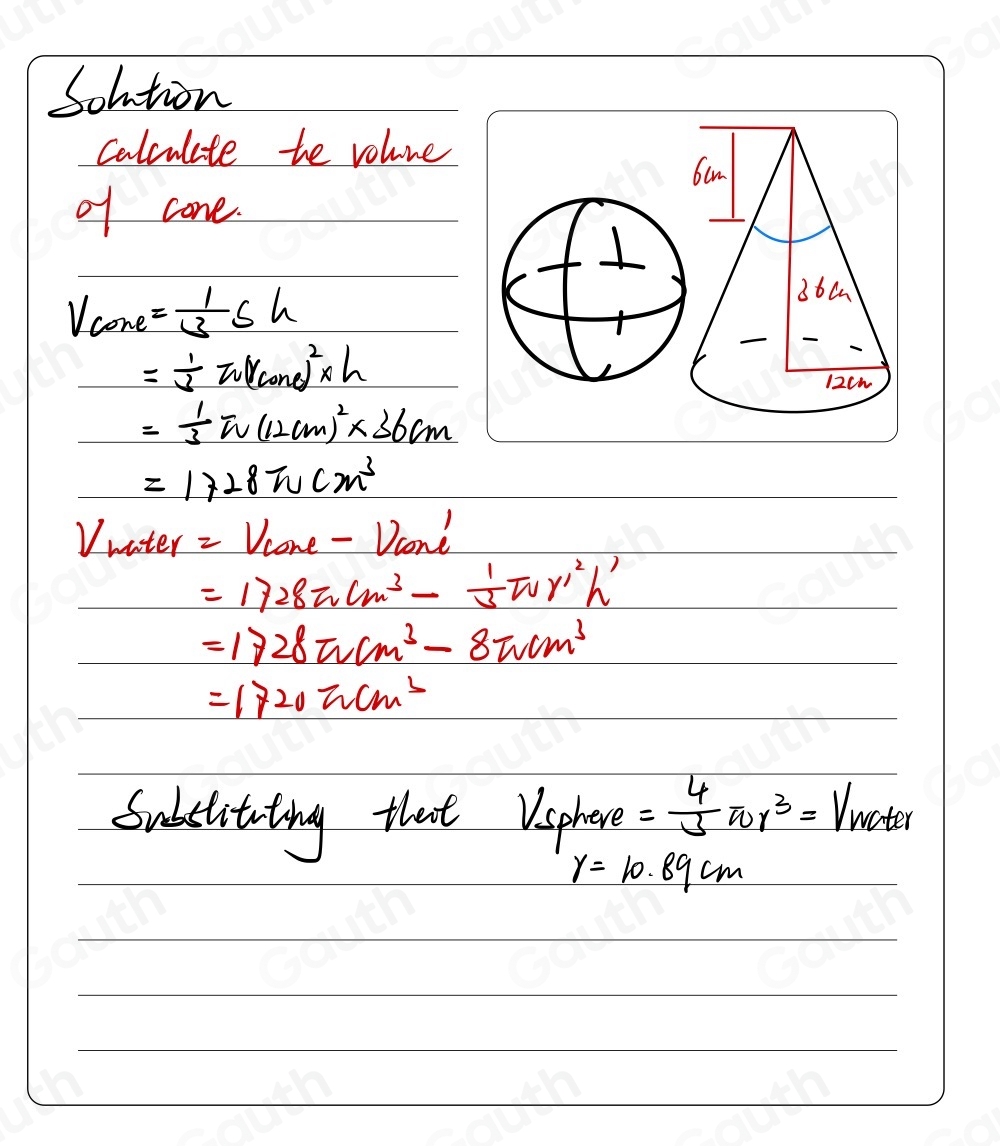 Solution
Calculate the volume
of cone.
6cm
36cm
12cm
Vcone = 1/3 S h
= 1/3 π(rcone)² × h
= 1/3 π (12cm)² × 36cm
= 1728 π cm³
Vwater = Vcone - Vcone'
= 1728π cm³ - 1/3 π r'² h'
= 1728 π cm³ - 8π cm³
= 1720 π cm³
Substituting that Vsphere = 4/3 π r³ = Vwater
r = 10.89 cm
Gauth